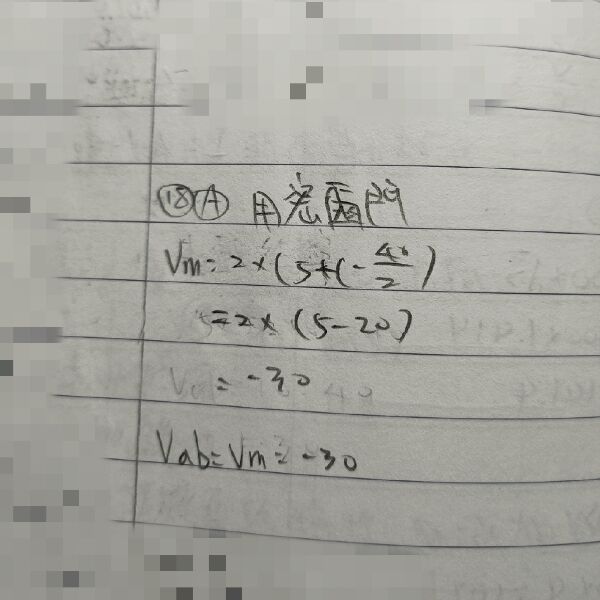 ⑱Ⓐ 用密爾門
Vm = 2×(5+(-40/2)
= 2×(5-20)
= -30
Vab = Vm = -30